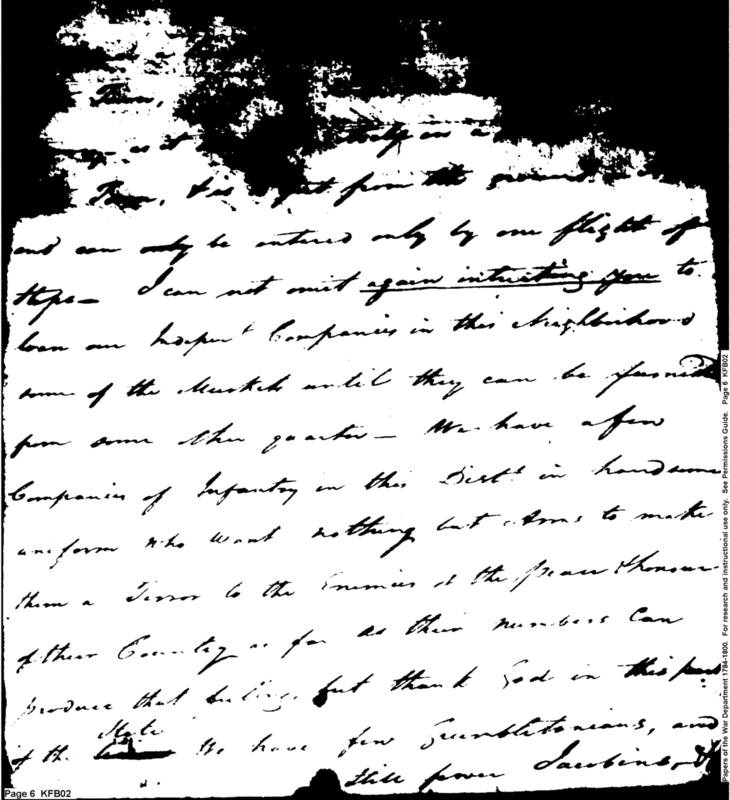 Town,
as it
Town, & is feet from the ground
and can only be entered only by one flight of
steps— I can not omit again intreating you to
loan our Indepen.t Companies in this Neighborhood
some of the Muskets until they can be furnished
from some other quarter— We have a few
Companies of Infantry in this Dist.t in handsome
uneform who want nothing but Arms to make
them a Terror to the Enemies of the peace & honour
of their Country as far as their numbers can
produce that feeling, but thank God in this part
of the State We have few Grumbletonians, and
still fewer Jacobins,
Page 6 KFB02
Papers of the War Department 1784-1800. For research and instructional use only. See Permissions Guide. Page 6 KFB02